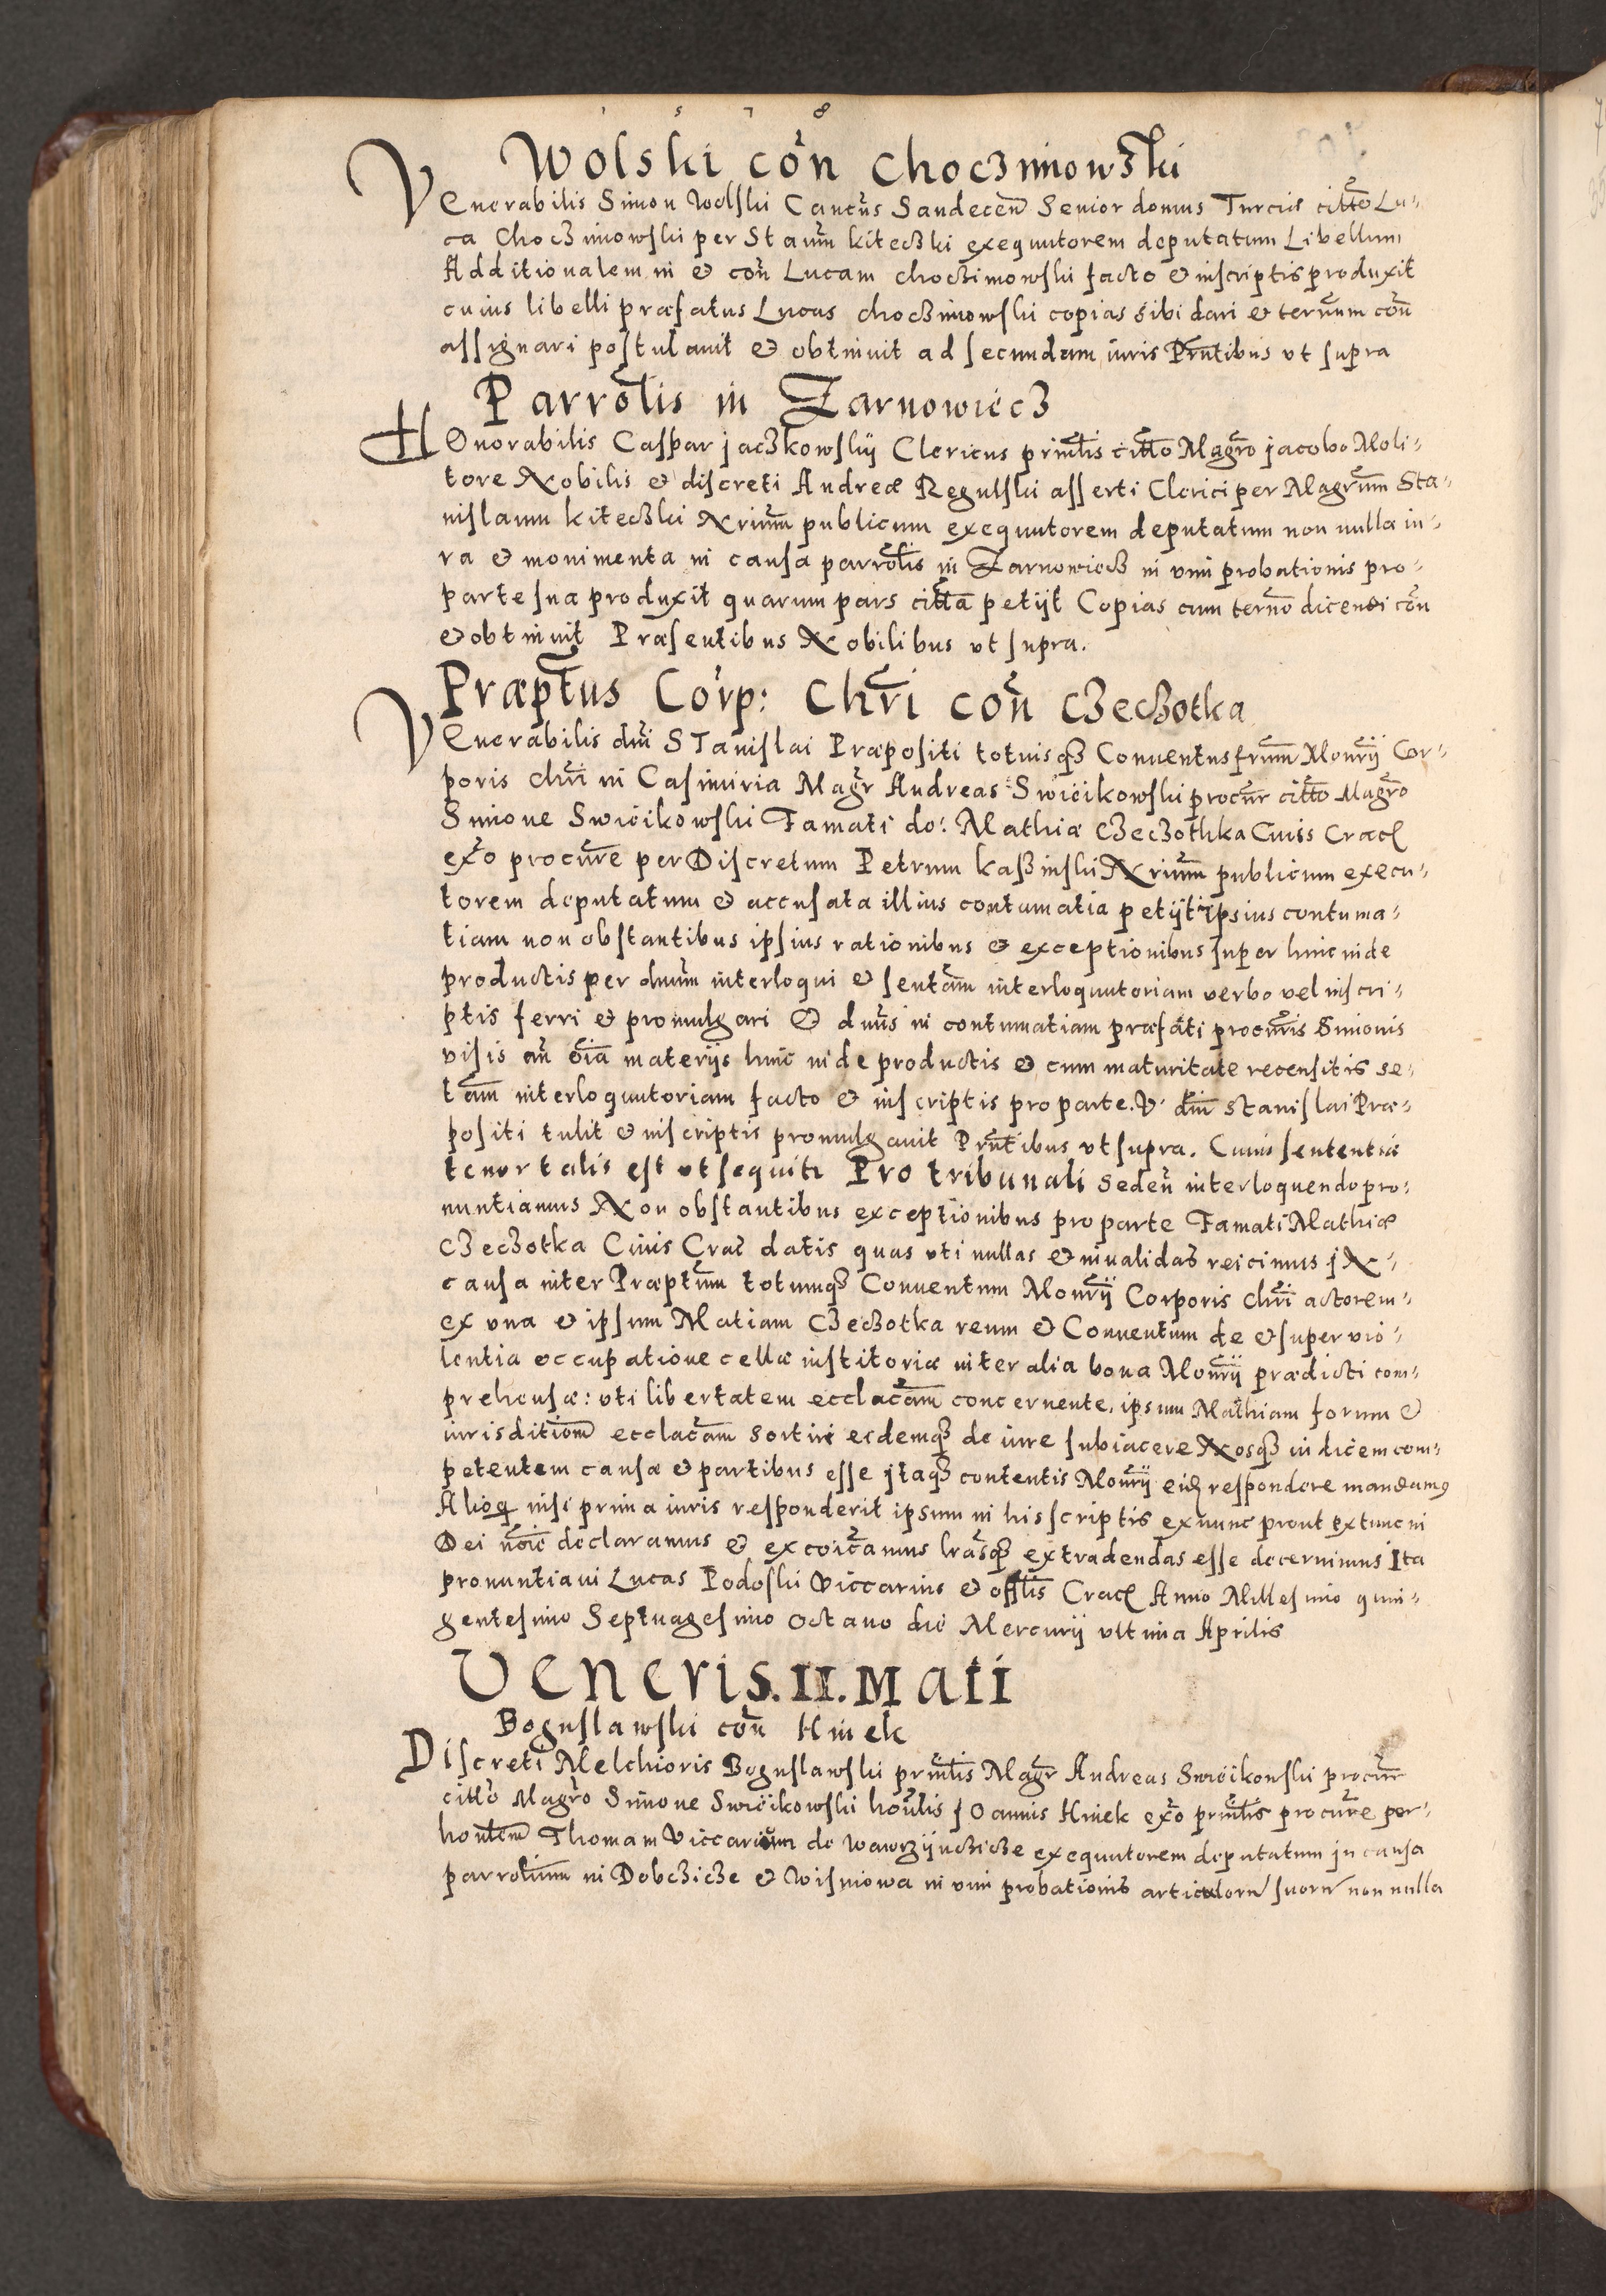 1 5 7 8
Wolski cōn Choczimowski
Venerabilis Simon Wolski Cancūs Sandecen̄ Senior domus Turcis citto Lu-
ca Choczimowski per Staum kiteczki exequutorem deputatum Libellum
Additionalem in & cōn Lucam choczimowski facto & inscriptis produxit
cuius libelli præfatus Lucas choczimowski copias sibi dari & ternum cōn
assignari postulauit & obtinuit ad secundam iuris Prntibus vt supra
Parrotis in Zarnowiecz
HOnorabilis Caspar jaczkowskij Clericus prinlis citto Magro jacobo Moli-
tore Nobilis & discreti Andreæ Regulski asserti Clerici per Magrum Sta-
nislaum kiteczki Nrium publicum exequutorem deputatum non nulla iu-
ra & monimenta in causa parrotis in Zarnowiecz in vim probationis pro
parte sua produxit quarum pars citta petijt Copias cum terno dicendi cōn
& obtinuit Præsentibus Nobilibus vt supra.
Præptus Corp: Chri cōn Czeczotka
Venerabilis dni STanislai Præpositi totiusqz Conuentus frum Monrij Cor-
poris chri in Casimiria Magr Andreas Swiėikowski procūr citto Magro
Simone Swiėikowski Famati do: Mathiæ Czeczothka Ciuis Crac
exo procure per Discretum Petrum kaszinski Nrium publicum execu-
torem deputatum & accusata illius contumatia petijt ipsius contuma-
tiam non obstantibus ipsius rationibus & exceptionibus super hinc inde
productis per dnum interloqui & sentam interloquutoriam verbo vel inscri-
ptis ferri & promulgari & dnus in contumatiam præfati procuris Simonis
visis an oia materijs hinc inde productis & cum maturitate recensitis se-
tam interloquutoriam facto & inscriptis pro parte. V. dni Stanislai Præ-
positi tulit & inscriptis promulgauit Prntibus vt supra. Cuius sententiæ
tenor talis est vt sequitr Pro tribunali seden̄ interloquendo pro-
nuntiamus Non obstantibus exceptionibus pro parte Famati Mathiæ
Czeczotka Ciuis Crac datis quas vti nullas & inualidas reicimus jN
causa inter Præptum totumqz Conuentum Monrij Corporis chri actorem
ex vna & ipsum Matiam Czeczotka reum & Conuentum de & super vio-
lentia occupatione cellæ institoriæ inter alia bona Monrij prædicti com-
prehensæ: vti libertatem ecclacam concernente, ipsum Mathiam forum &
iurisditiom ecclacam sortiri eidemqz de iure subiacere Nosqz iudicem com-
petentem causæ & partibus esse jtaqz contentis Monrij eidz respondere mandamus
Alioq nisi prima iuris responderit ipsum in his scriptis ex nunc prout ex tunc in
Dei noie declaramus & excoicamus lrasqz extradendas esse decernimus Ita
pronuntiaui Lucas Podoski Viccarius & offlis Crac Anno Millesimo quin-
gentesimo Septuagesimo Octauo die Mercurij vltima Aprilis
Veneris. II. Maii
Boguslawski cōn Hinek
Discreti Melchioris Boguslawski prinlis Magr Andreas Swiėikowski procūr
citto Magro Simone Swiėikowski honlis jOannis Hinek exo prinlis procure per
hontem Thomam Viccarium de Wawrzijnczicze exequutorem deputatum jn causa
parrotium in Dobczicze & Wisniowa in vim probationis articulorū suorū non nulla